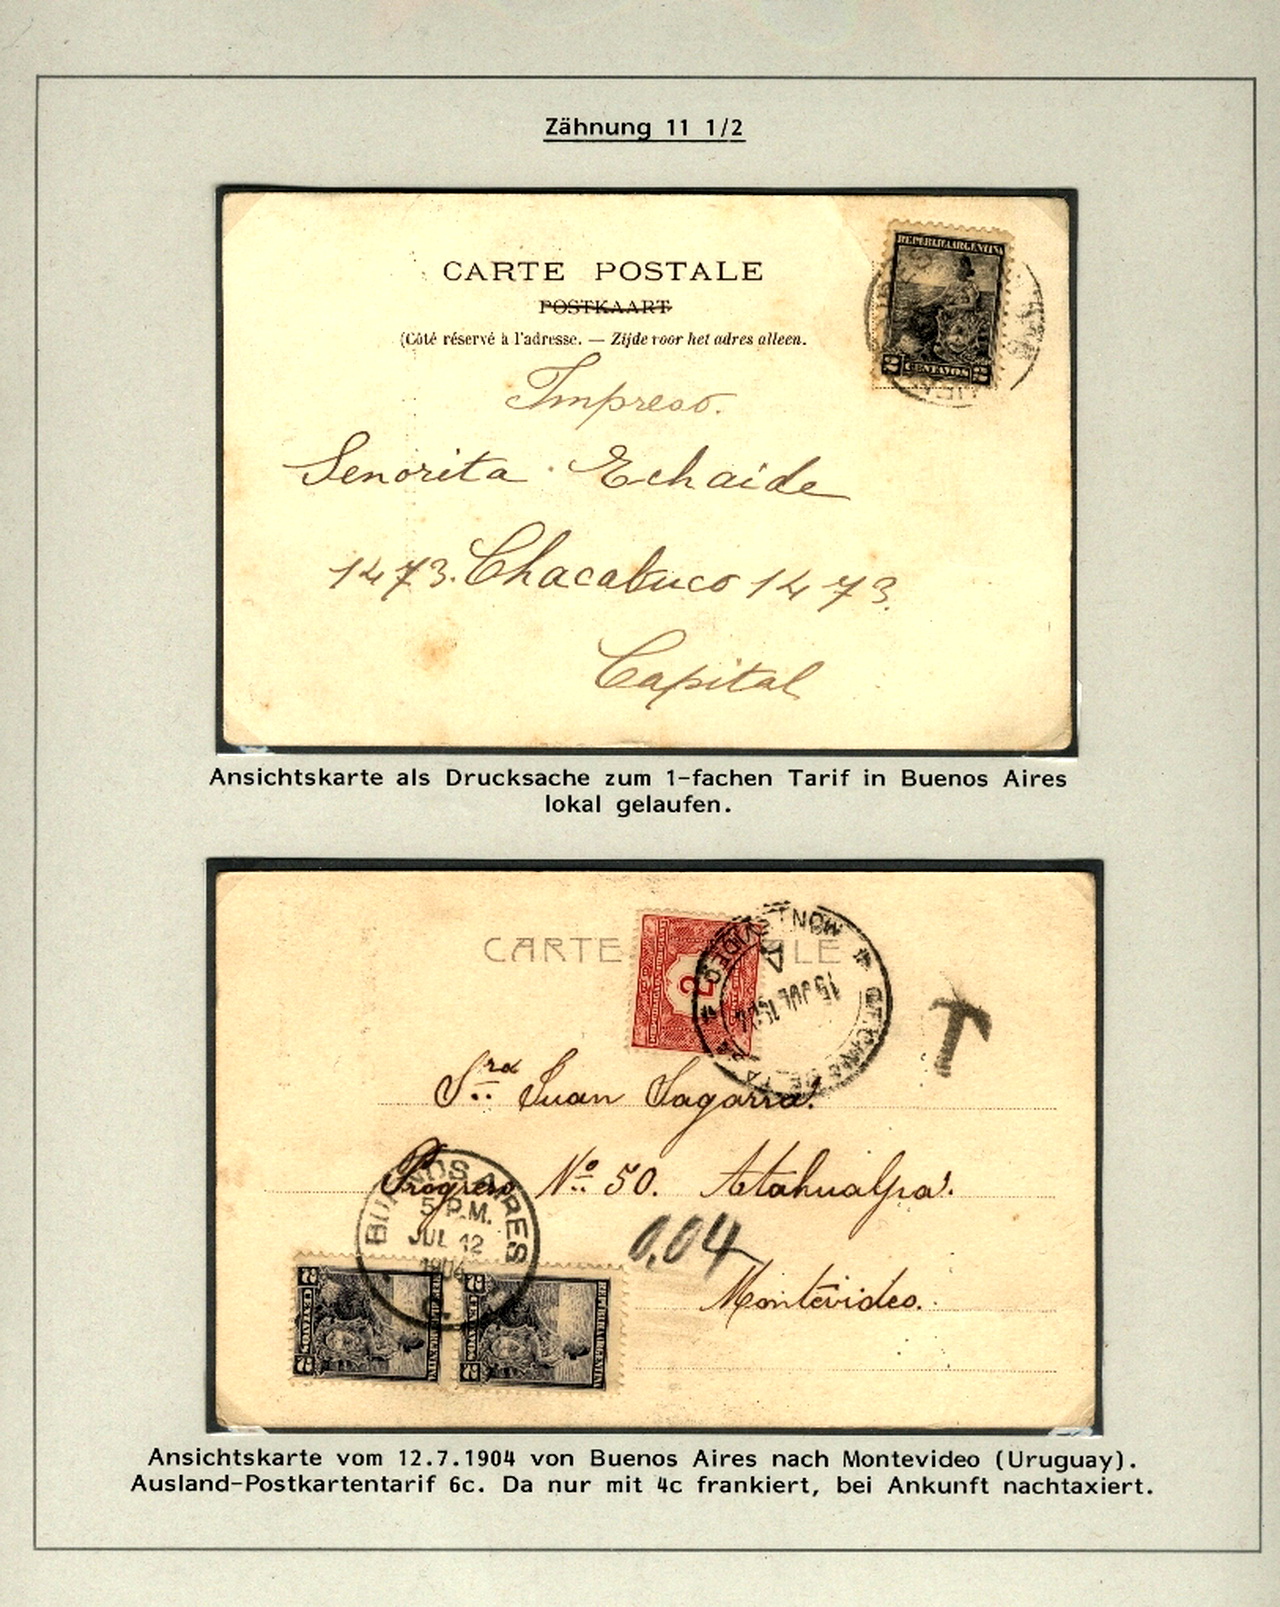 Zähnung 11 1/2
REPUBLICA ARGENTINA
2 CENTAVOS 2
CARTE POSTALE
POSTKAART
(Côté réservé à l'adresse. — Zijde voor het adres alleen.
Impreso.
Senorita Echaide
1473. Chacabuco 1473.
Capital
Ansichtskarte als Drucksache zum 1-fachen Tarif in Buenos Aires
lokal gelaufen.
CARTE ALE
2
MONTEVIDEO
A
15 JUL
T
Sra Juan Sagarra.
Progreso No 50. Atahualpa.
0.04
Montevideo.
BUENOS AIRES
5 P.M.
JUL 12
1904
2 CENTAVOS 2
2 CENTAVOS 2
Ansichtskarte vom 12.7.1904 von Buenos Aires nach Montevideo (Uruguay).
Ausland-Postkartentarif 6c. Da nur mit 4c frankiert, bei Ankunft nachtaxiert.